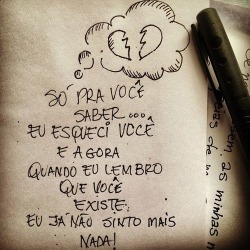 SÓ PRA VOCÊ
SABER...
EU ESQUECI VOCÊ
E AGORA
QUANDO EU LEMBRO
QUE VOCÊ
EXISTE,
EU JÁ NÃO SINTO MAIS
NADA!
as minhas